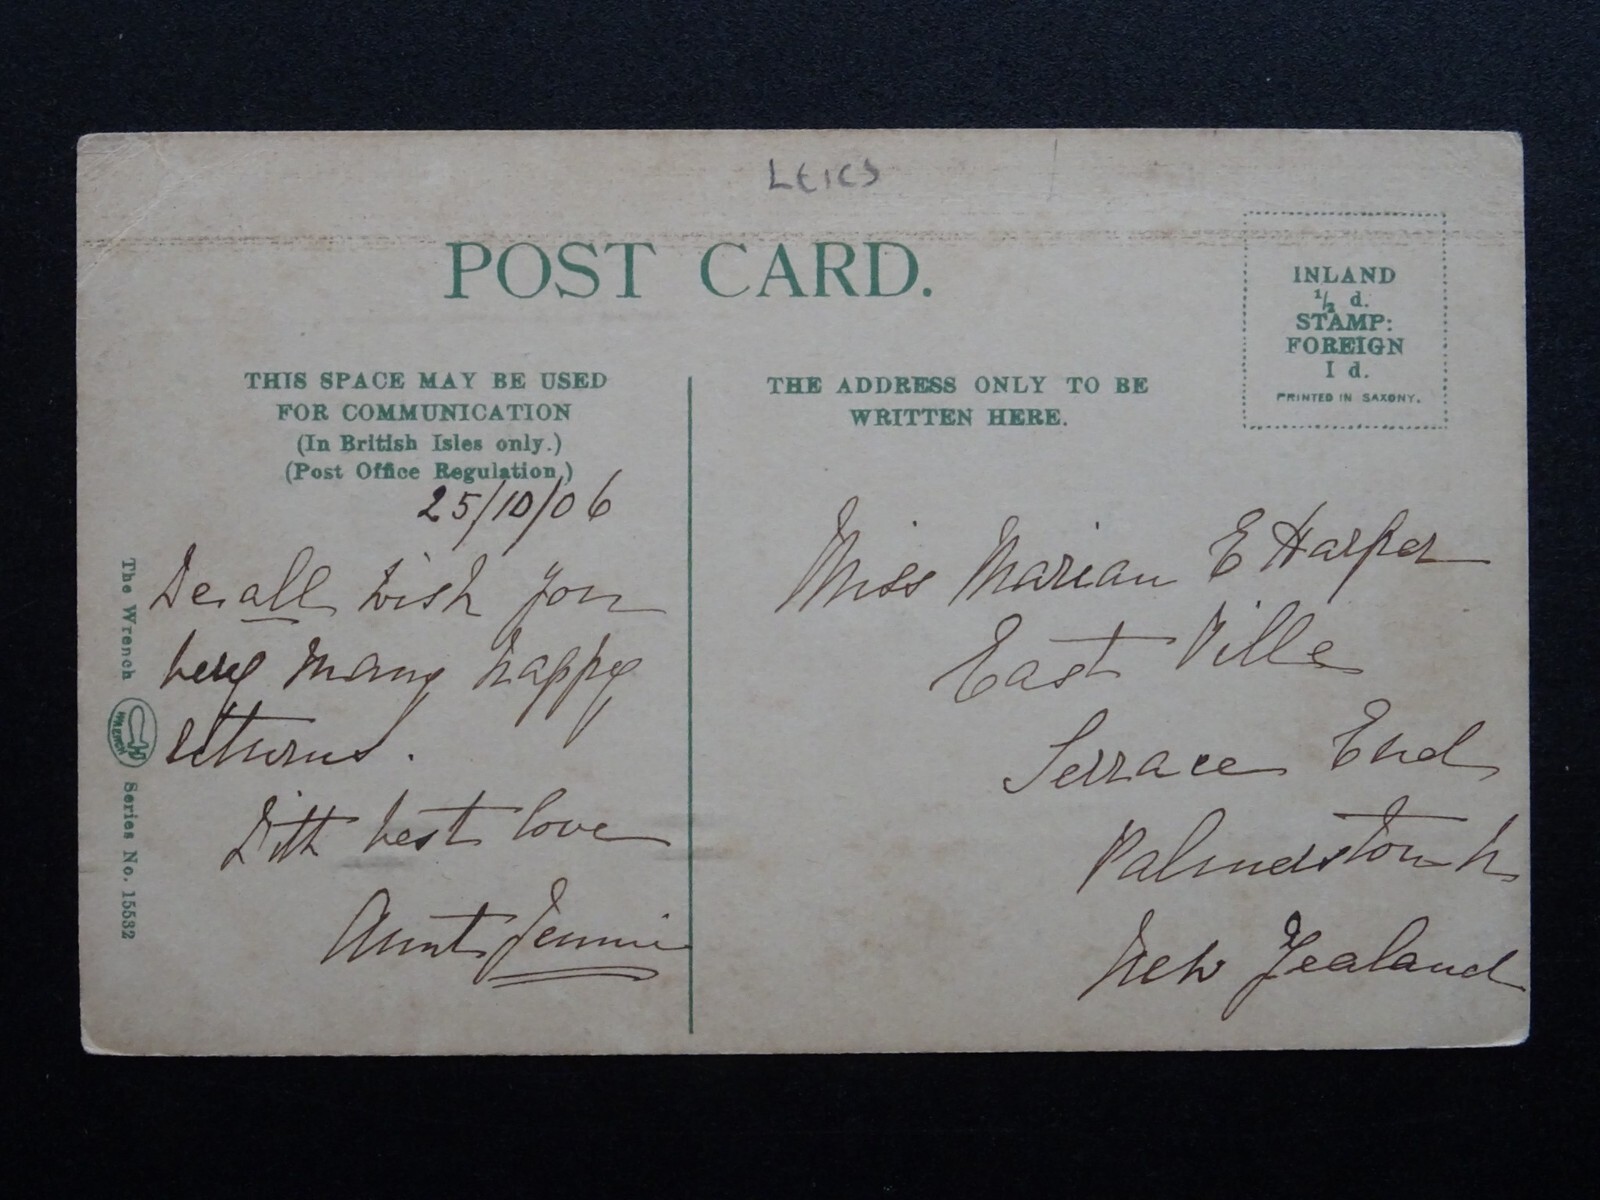 LEICS
POST CARD.
INLAND
½ d.
STAMP:
FOREIGN
1 d.
PRINTED IN SAXONY.
THIS SPACE MAY BE USED
FOR COMMUNICATION
(In British Isles only.)
(Post Office Regulation,)
25/10/06
We all wish you
very many happy
returns.
With best love
Aunt Jennie
THE ADDRESS ONLY TO BE
WRITTEN HERE.
Miss Marian E Harper
East Ville
Terrace End
Palmerston N
New Zealand
The Wrench
WRENCH
Series No. 15532